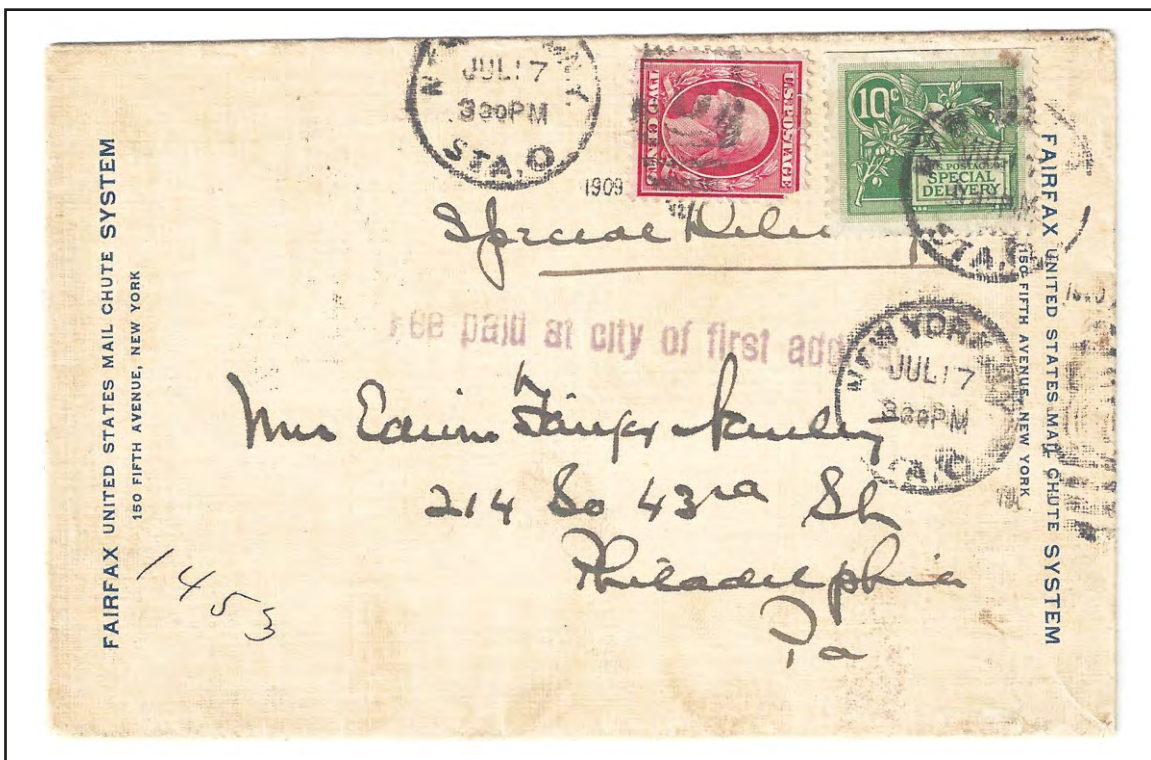 FAIRFAX UNITED STATES MAIL CHUTE SYSTEM
150 FIFTH AVENUE, NEW YORK
N.Y.
JUL 17
3 30 PM
STA. O
1909
U.S. POSTAGE
TWO CENTS
10c
U.S. POSTAGE
SPECIAL
DELIVERY
STA. O
Special Delivery
Fee paid at city of first address
NEW YORK
JUL 17
3 30 PM
STA. O
Mrs Edwin
214 So 43rd St
Philadelphia
Pa
1453
FAIRFAX UNITED STATES MAIL CHUTE SYSTEM
150 FIFTH AVENUE, NEW YORK